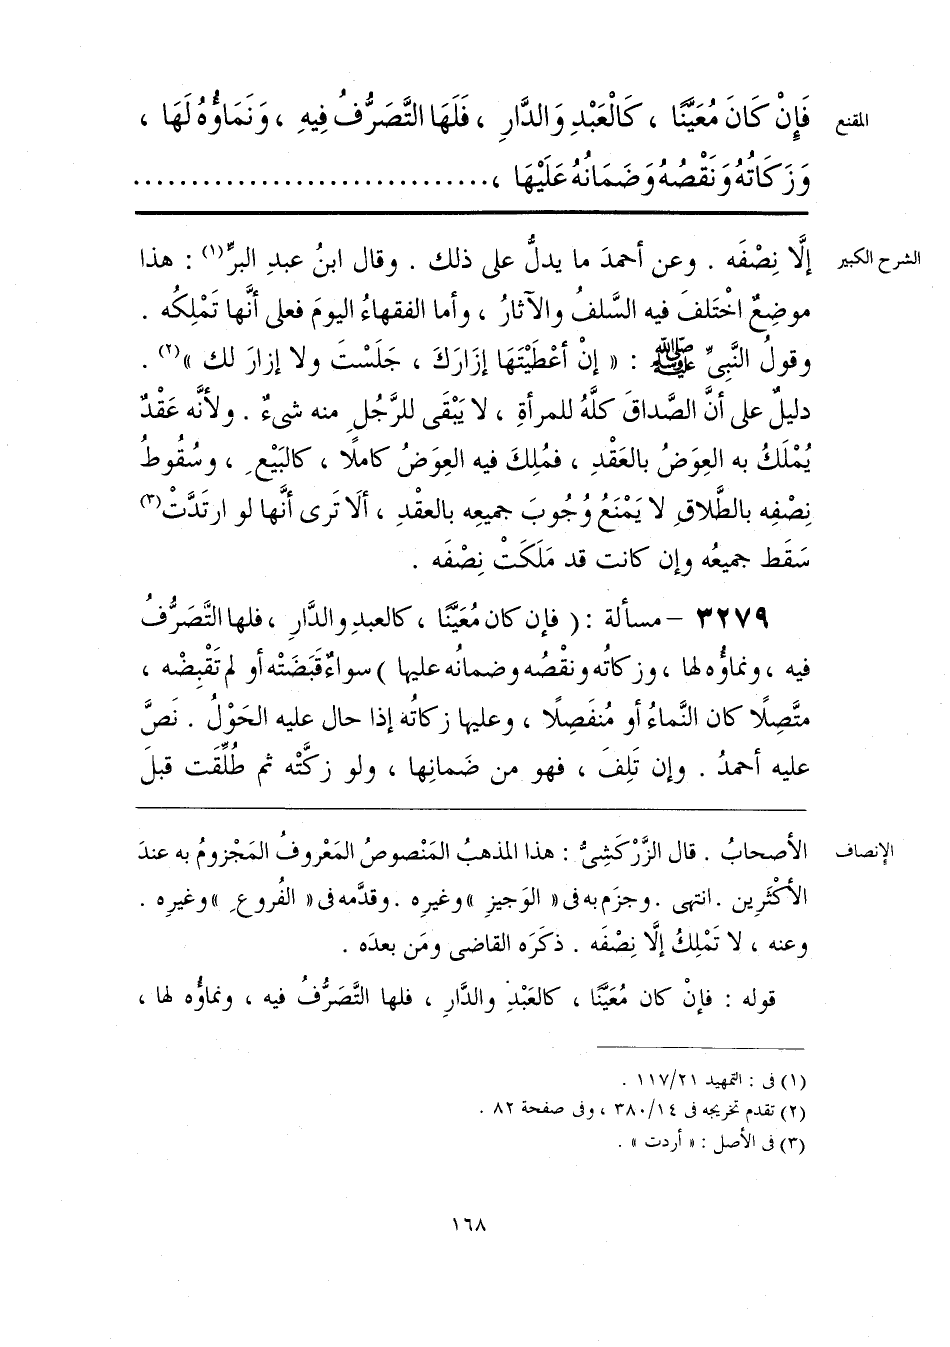 المقنع
فَإِنْ كَانَ مُعَيَّنًا ، كَالْعَبْدِ وَالدَّارِ ، فَلَهَا التَّصَرُّفُ فِيهِ ، وَنَمَاؤُهُ لَهَا ،
وَزَكَاتُهُ وَنَقْصُهُ وَضَمَانُهُ عَلَيْهَا ، ..............................
الشرح الكبير
إلَّا نِصْفَه . وعن أحمدَ ما يدلُّ على ذلك . وقال ابنُ عبدِ البرِّ(١) : هذا
موضِعٌ اخْتَلفَ فيه السَّلفُ والآثارُ ، وأما الفقهاءُ اليومَ فعلى أنَّها تَمْلِكُه .
وقولُ النَّبِىِّ ﷺ : « إنْ أعْطَيْتَهَا إزَارَكَ ، جَلَسْتَ ولا إزارَ لك »(٢) .
دليلٌ على أنَّ الصَّداقَ كلَّهُ للمرأةِ ، لا يَبْقَى للرَّجُلِ منه شىءٌ . ولأنَّه عَقْدٌ
يُمْلَكُ به العِوَضُ بالعَقْدِ ، فمُلِكَ فيه العِوَضُ كاملًا ، كالبَيْعِ ، وسُقُوطُ
نِصْفِه بالطَّلاقِ لا يَمْنَعُ وُجُوبَ جميعِه بالعقْدِ ، ألَا تَرى أنَّها لو ارتَدَّتْ(٣)
سَقَط جميعُه وإن كانت قد مَلَكَتْ نِصْفَه .
٣٢٧٩ – مسألة : ( فإن كان مُعَيَّنًا ، كالعبدِ والدَّارِ ، فلها التَّصَرُّفُ
فيه ، ونماؤُه لها ، وزكاتُه ونقْصُه وضمانُه عليها ) سواءٌ قَبَضَتْه أو لم تَقْبِضْه ،
متَّصِلًا كان النَّماءُ أو مُنفَصِلًا ، وعليها زكاتُه إذا حال عليه الحَوْلُ . نَصَّ
عليه أحمدُ . وإن تَلِفَ ، فهو من ضَمانِها ، ولو زكَّتْه ثم طُلِّقَت قبلَ
الإنصاف
الأصحابُ . قال الزَّرْكَشِىُّ : هذا المذهبُ المَنْصوصُ المَعْروفُ المَجْزومُ به عندَ
الأكْثَرِين . انتهى . وجزَم به فى « الوَجيزِ » وغيرِه . وقدَّمه فى « الفُروعِ » وغيرِه .
وعنه ، لا تَمْلِكُ إلَّا نِصْفَه . ذكَرَه القاضى ومَن بعدَه .
قوله : فإنْ كان مُعَيَّنًا ، كالعَبْدِ والدَّارِ ، فلها التَّصَرُّفُ فيه ، ونماؤُه لها ،
(١) فى : التمهيد ٢١/١١٧ .
(٢) تقدم تخريجه فى ١٤/٣٨٠ ، وفى صفحة ٨٢ .
(٣) فى الأصل : « أردت » .
١٦٨